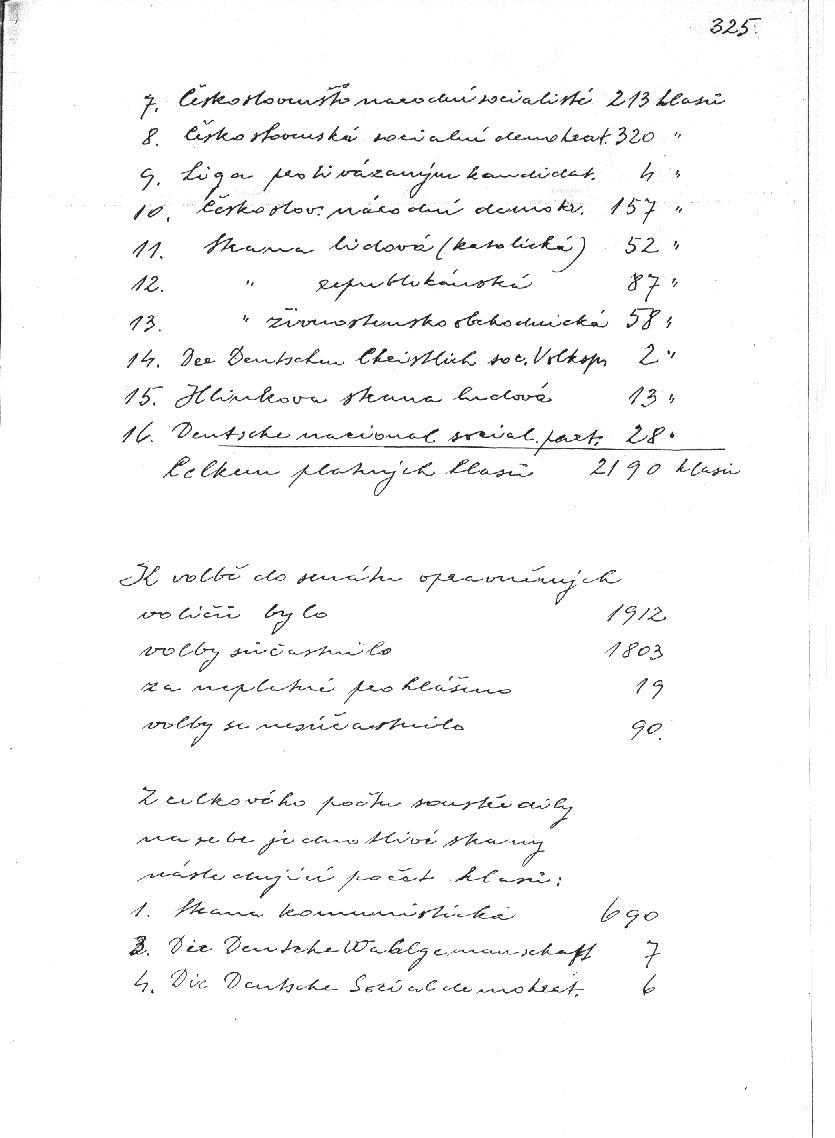 325.
7. Českoslovenští národní socialisté 213 hlasů
8. Československá sociální demokrat. 320 "
9. Liga proti vázaným kandidát. 4 "
10. Českoslov. národní demokr. 157 "
11. Strana lidová (katolická) 52 "
12. " republikánská 87 "
13. " živnostensko obchodnická 58 "
14. Die Deutschen Christlich soc. Volksp. 2 "
15. Hlinkova strana ludová 13 "
16. Deutsche nacional. social. part. 28 "
Celkem platných hlasů 2190 hlasů
K volbě do senátu oprávněných
voličů bylo 1912
volby súčastnilo 1803
za neplatné prohlášeno 19
volby se nesúčastnilo 90.
Z celkového počtu soustředily
na sebe jednotlivé strany
následující počet hlasů:
1. Strana komunistická 690
3. Die Deutsche Wahlgemanschaft 7
4. Die Deutsche Sozialdemokrat. 6